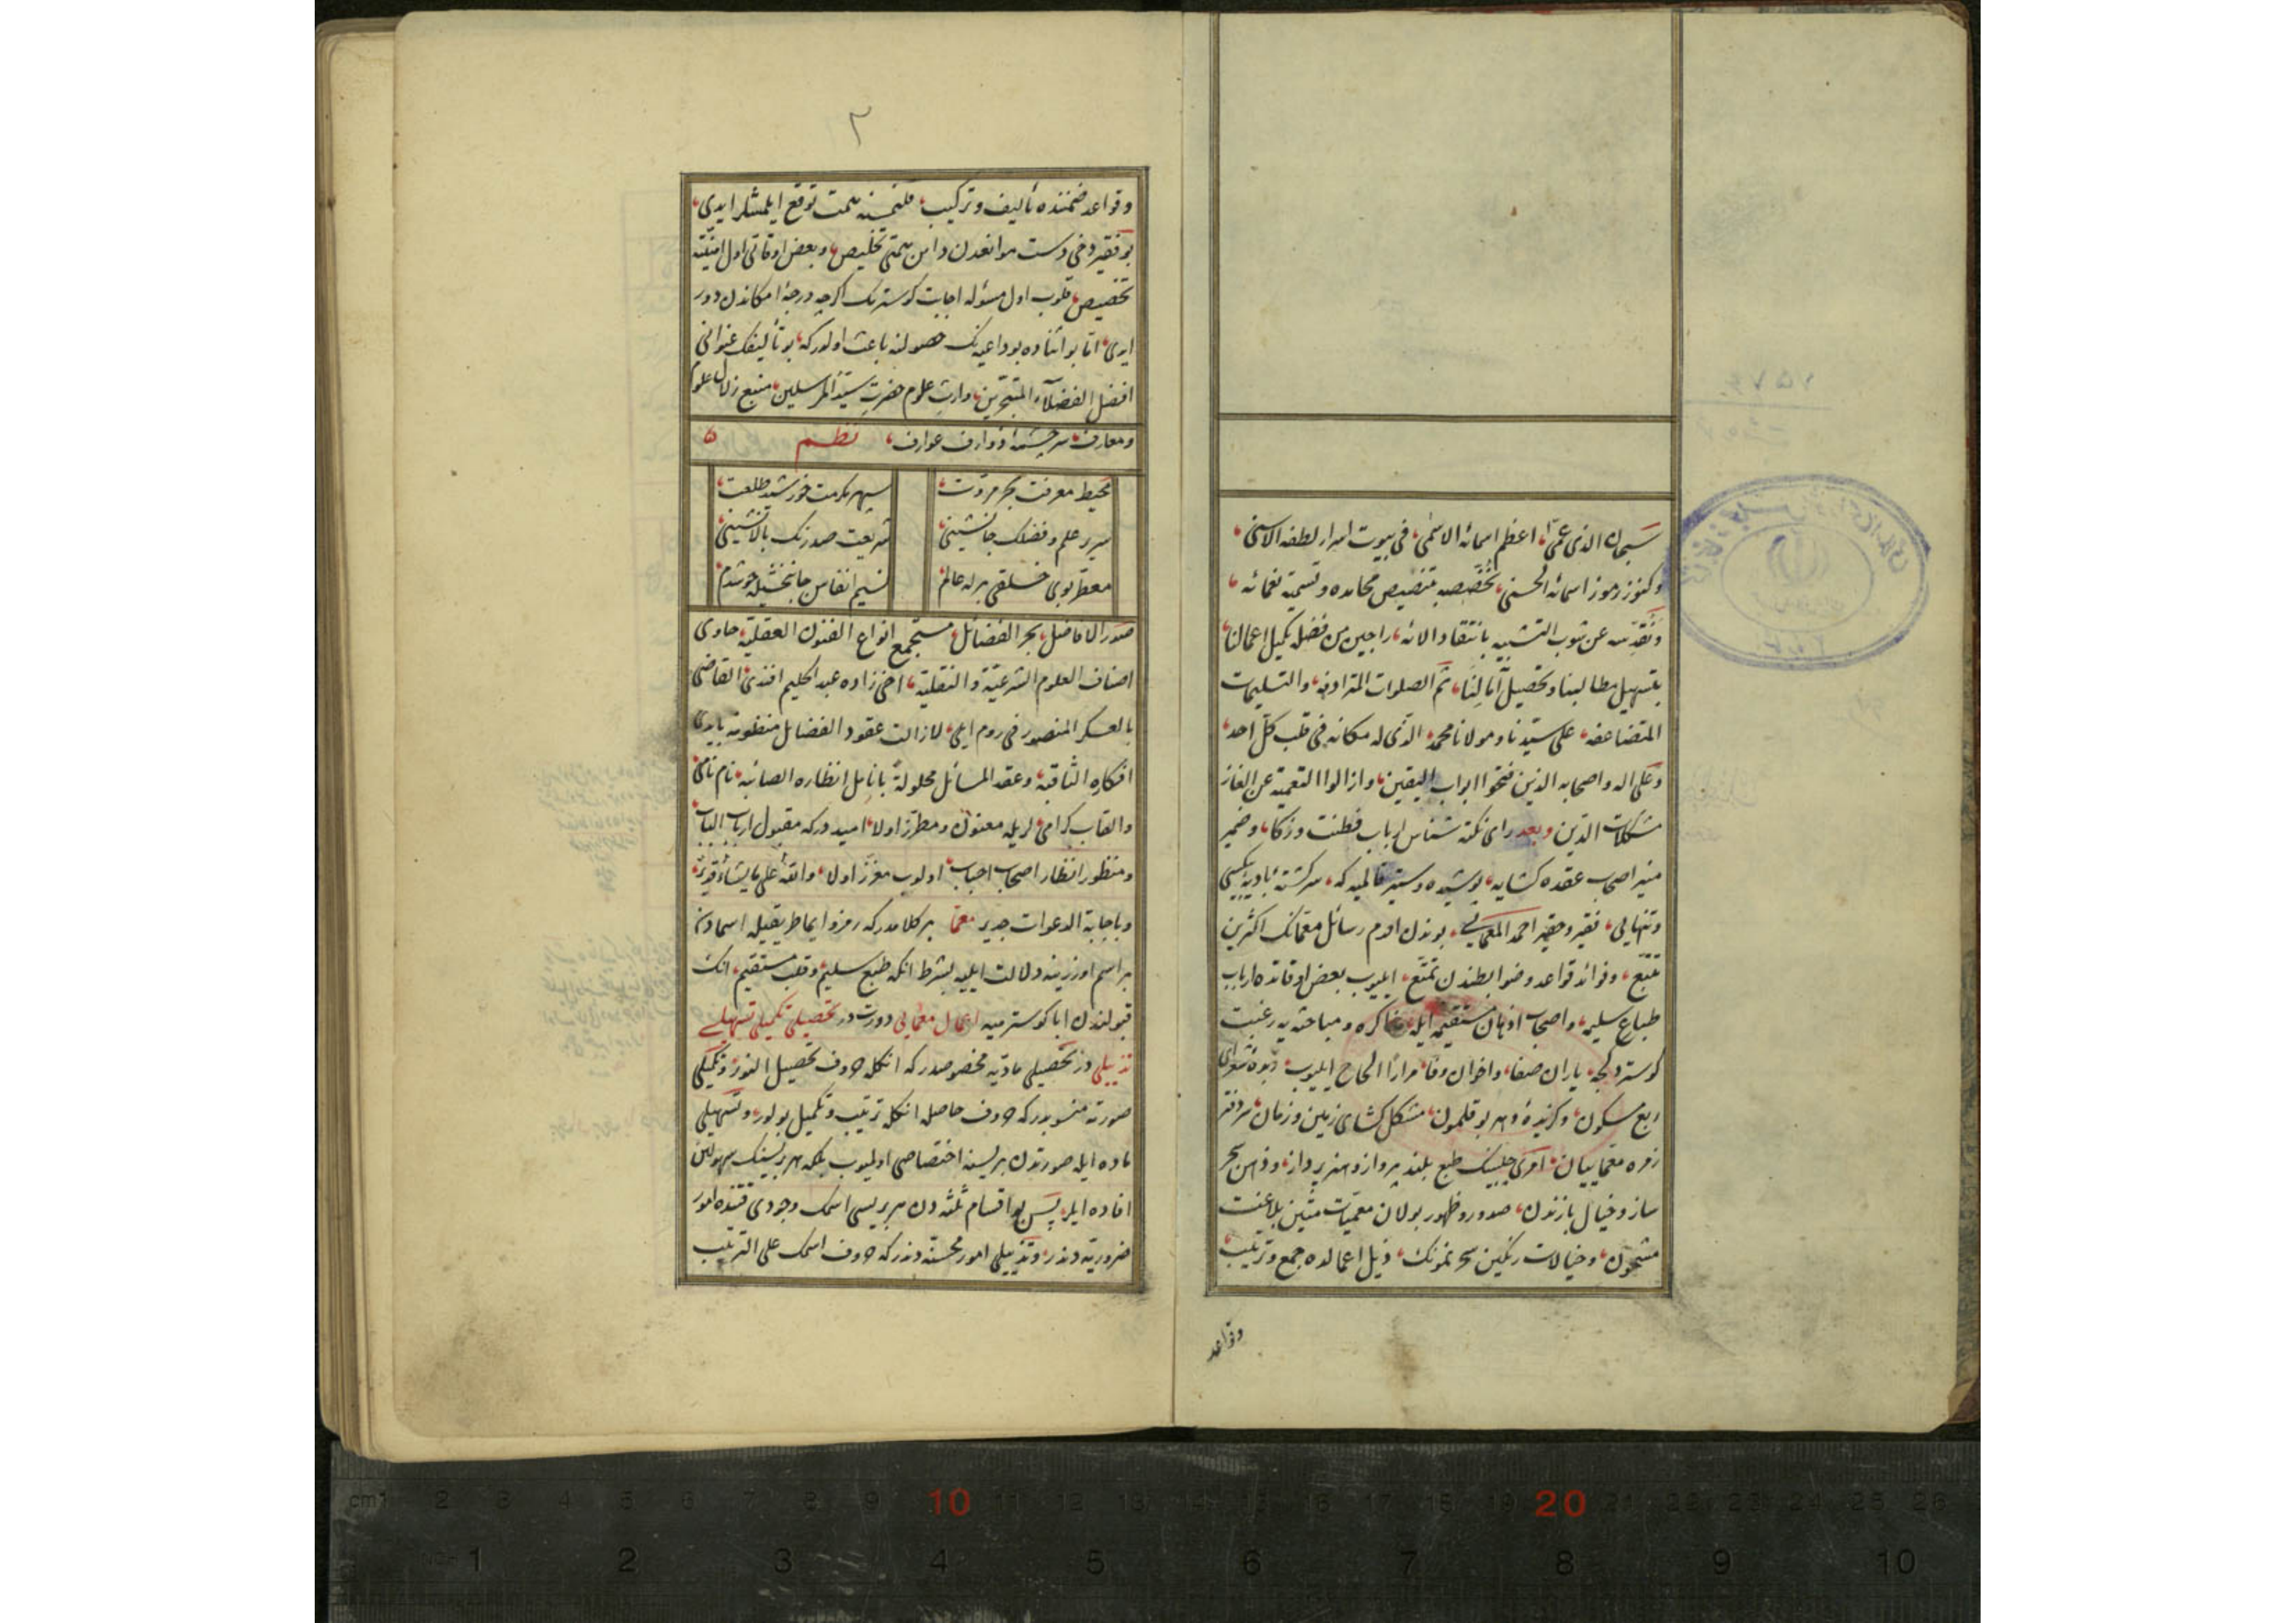 سبحان الذی عمّی اعظم اسمائه الاسمی فی بیوت اسرار لطفه الاسنی
وکنوز رموز اسمائه الحسنی نخصّصه بتنصیص محامده وتسمیة نعمائه
ونقدّسه عن شوب التشبیه بانتقاد الائه راجین من فضله تکمیل اعمالنا
بتسهیل مطالبنا وتحصیل آمالنا ثم الصلوات المترادفه والتسلیمات
المتضاعفه علی سیّدنا ومولانا محمد الذی له مکانة فی قلب کلّ احد
وعلی اله واصحابه الذین فتحوا ابواب الیقین وازالوا التعمیة عن الغاز
مشکلات الدین وبعد رای نکته شناس ارباب فطنت وذکا وضمیر
منیر اصحاب عقده کشایه پوشیده وستر قالمیه که سرکشتهٔ بادیهٔ بیکسی
وتنهایی فقیر وحقیر احمد المعمایی بوندن اقدم رسائل معمانک اکثرین
تتبّع وفوائد قواعد وضوابطندن تمتّع ایلیوب بعض اوقاتده ارباب
طباع سلیمه واصحاب اذهان مستقیمه ایله مذاکره ومباحثه یه رغبت
کوستردکجه یاران صفا واخوان وفا مرارًا الحاح ایلیوب زبدهٔ شعرای
ربع مسکون وکزیدهٔ دهر بوقلمون مشکل کشای زمین وزمان سردفتر
زمره معماییان امری چلبینک طبع بلند پرواز وهنرپرداز وذهن سحر
ساز وخیال بازندن صدور وظهور بولان معمیات متین بلاغت
مشحون وخیالات رنکین سحرنمونک ذیل اعمالده جمع وترتیب
وقواعد
٢
وقواعد ضمننده تألیف وترکیب قلنمسنه همت توقع ایلمشلر ایدی
بو فقیر دخی دست موانعدن دامن همتی تخلیص وبعض اوقاتی اول امنیّته
تخصیص قلوب اول مسؤله اجابت کوسترمک اکرچه درجهٔ امکاندن دور
ایدی اما بو اثناده بو داعیه نک حصولنه باعث اولور که بو تألیفک عنوانی
افضل الفضلاء المتبحّرین وارث علوم حضرت سیّد المرسلین منبع زلال علوم
ومعارف سرچشمهٔ ذوارف عوارف نظم
محیط معرفت بحر مروّت سپهر مکرمت خورشید طلعت
سریر علم وفضلک جانشینی شریعت صدرنک بالانشینی
معطّر بوی خلقی برله عالم نسیم انفاس جانبخشیله خوشدم
صدر الافاضل بحر الفضائل مستجمع انواع الفنون العقلیة حاوی
اصناف العلوم الشرعیّة والنقلیّة اخی زاده عبد الحلیم افندی القاضی
بالعسکر المنصور فی روم ایلی لازالت عقود الفضایل منظومة بایدی
افکاره الثاقبة وعقد المسائل محلولة بانامل انظاره الصائبه نام نامی
والقاب کرامی لریله معنون ومطرّز اولا امیددرکه مقبول ارباب الباب
ومنظور انظار اصحاب احباب اولوب معزّز اولا والله علی ما یشاء قدیر
وباجابة الدعوات جدیر معمّا بر کلامدرکه رمز وایما طریقیله اسمادن
بر اسم اوزرینه دلالت ایلیه بشرط انکه طبع سلیم وقلب مستقیم انک
قبولندن ابا کوسترمیه اعمال معمّایی دورت در تحصیلی تکمیلی تسهیلی
تذییلی در تحصیلی مادّیه مخصوصدرکه انکله حروف تحصیل النور وتکمیلی
صورته منسوبدرکه حروف حاصله انکله ترتیب وتکمیل بولور وتسهیلی
ماده ایله صورتدن بریسنه اختصاصی اولمیوب بلکه هر بریسنک سهولتن
افاده ایلر پس بو اقسام ثلثه دن هر بریسی اسمک وجودی قتنده امور
ضروریّه دندر وتذییلی امور محسنه دندرکه حروف اسمک علی الترتیب